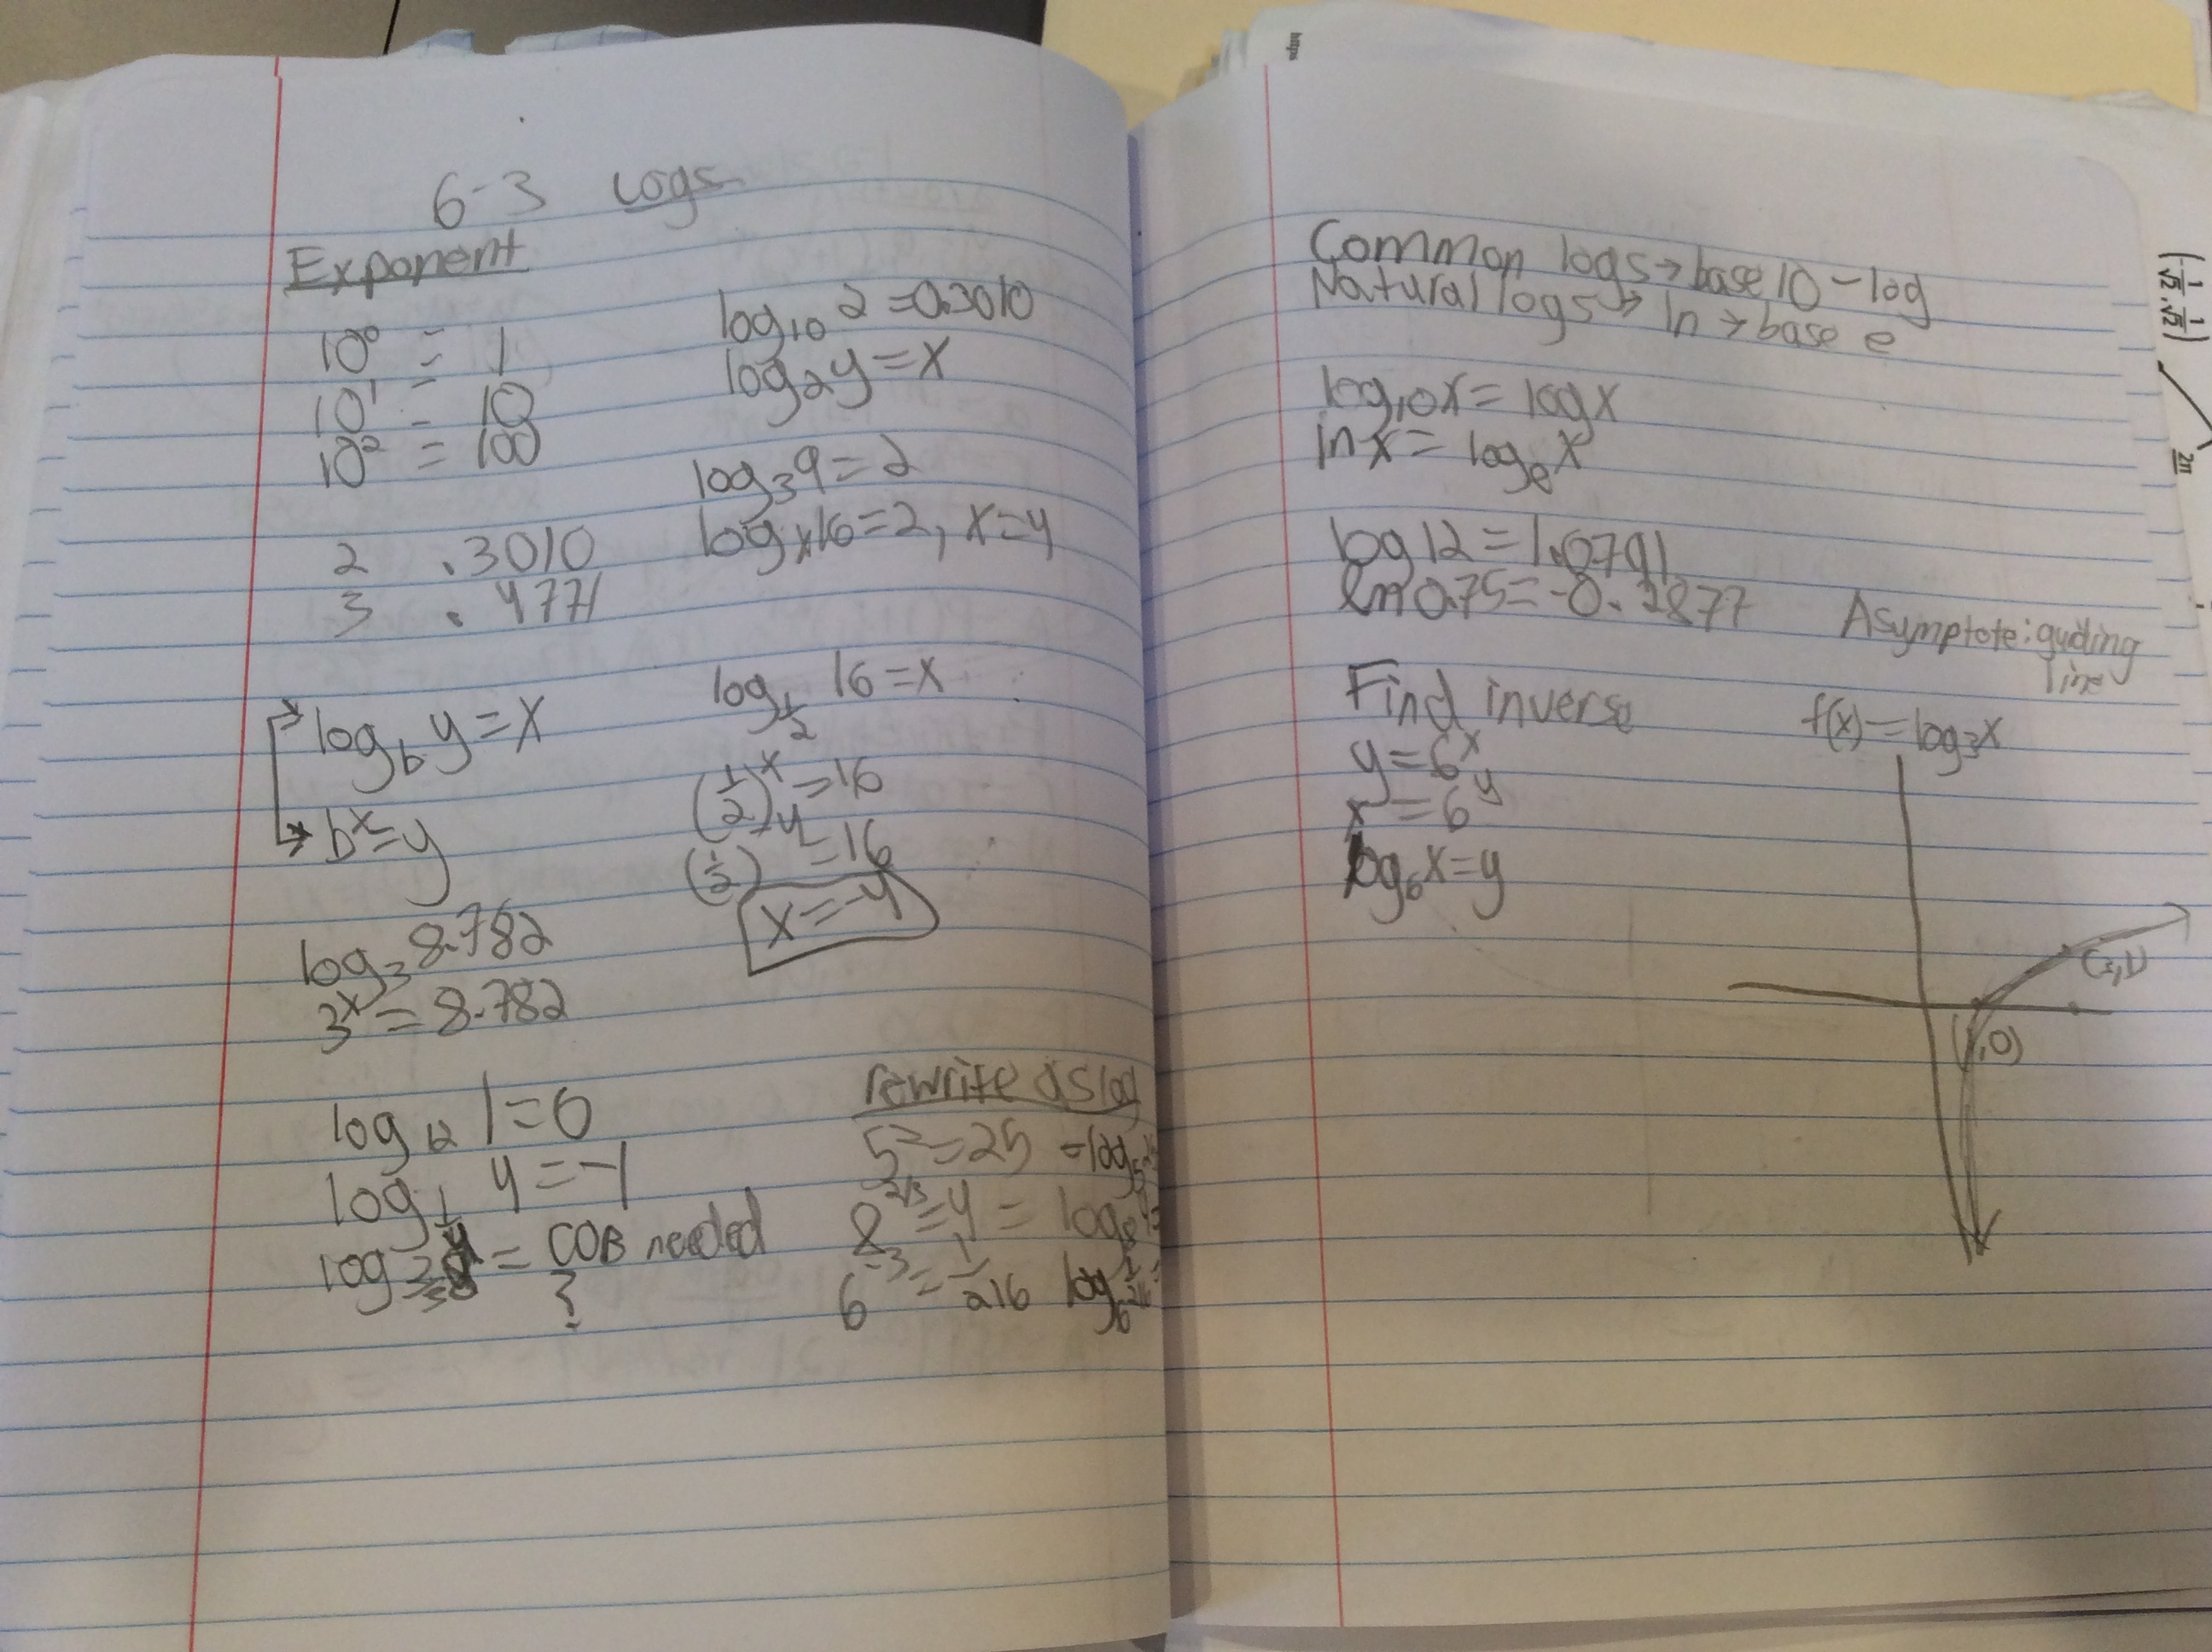 6-3 Logs
Exponent
10⁰ = 1
10¹ = 10
10² = 100
2 .3010
3 .4771
log_b y = x
b^x = y
log₃ 8.782
3^x = 8.782
log₁₂ 1 = 0
log_1/4 4 = -1
= COB needed
?
log₁₀ 2 = 0.3010
log₂ y = x
log₃ 9 = 2
log_x 16 = 2, x = 4
log_1/2 16 = x
(1/2)^x = 16
(1/2) = 16
x = -4
rewrite as log
5² = 25 = log₅
8^2/3 = 4 = log₈
6^-3 = 1/216 log₆ 1/216 =
Common logs → base 10 - log
Natural logs → ln → base e
log₁₀ x = log x
ln x = log_e x
log 12 = 1.0791
ln 0.75 = -0.2877
Find inverse
y = 6^x
x = 6^y
log₆ x = y
Asymptote: guding
line
f(x) = log₃ x
(3,1)
(1,0)
https
(-1/√2, 1/√2)
2π